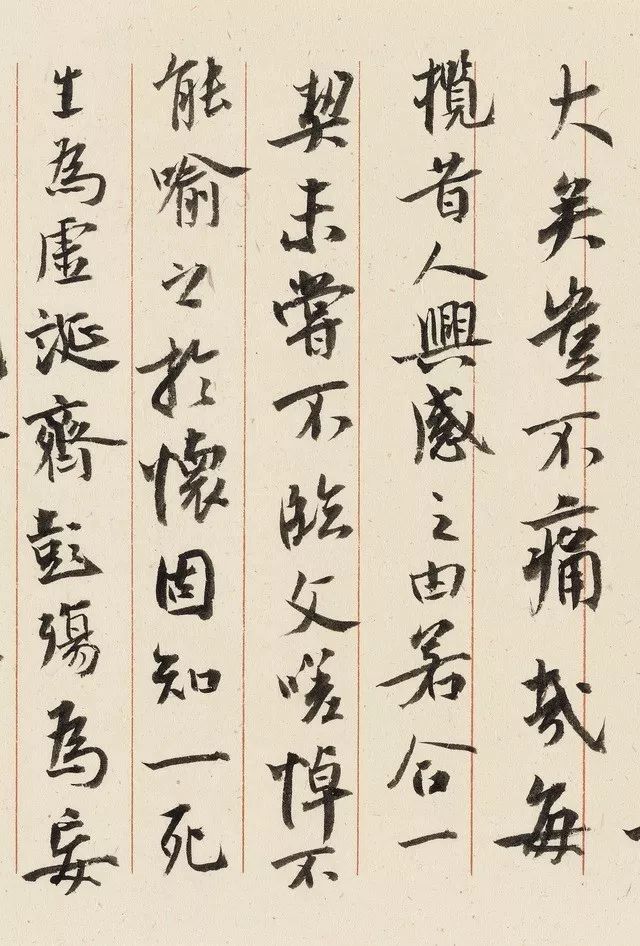 大矣豈不痛哉每
攬昔人興感之由若合一
契未嘗不臨文嗟悼不
能喻之於懷固知一死
生為虛誕齊彭殤為妄